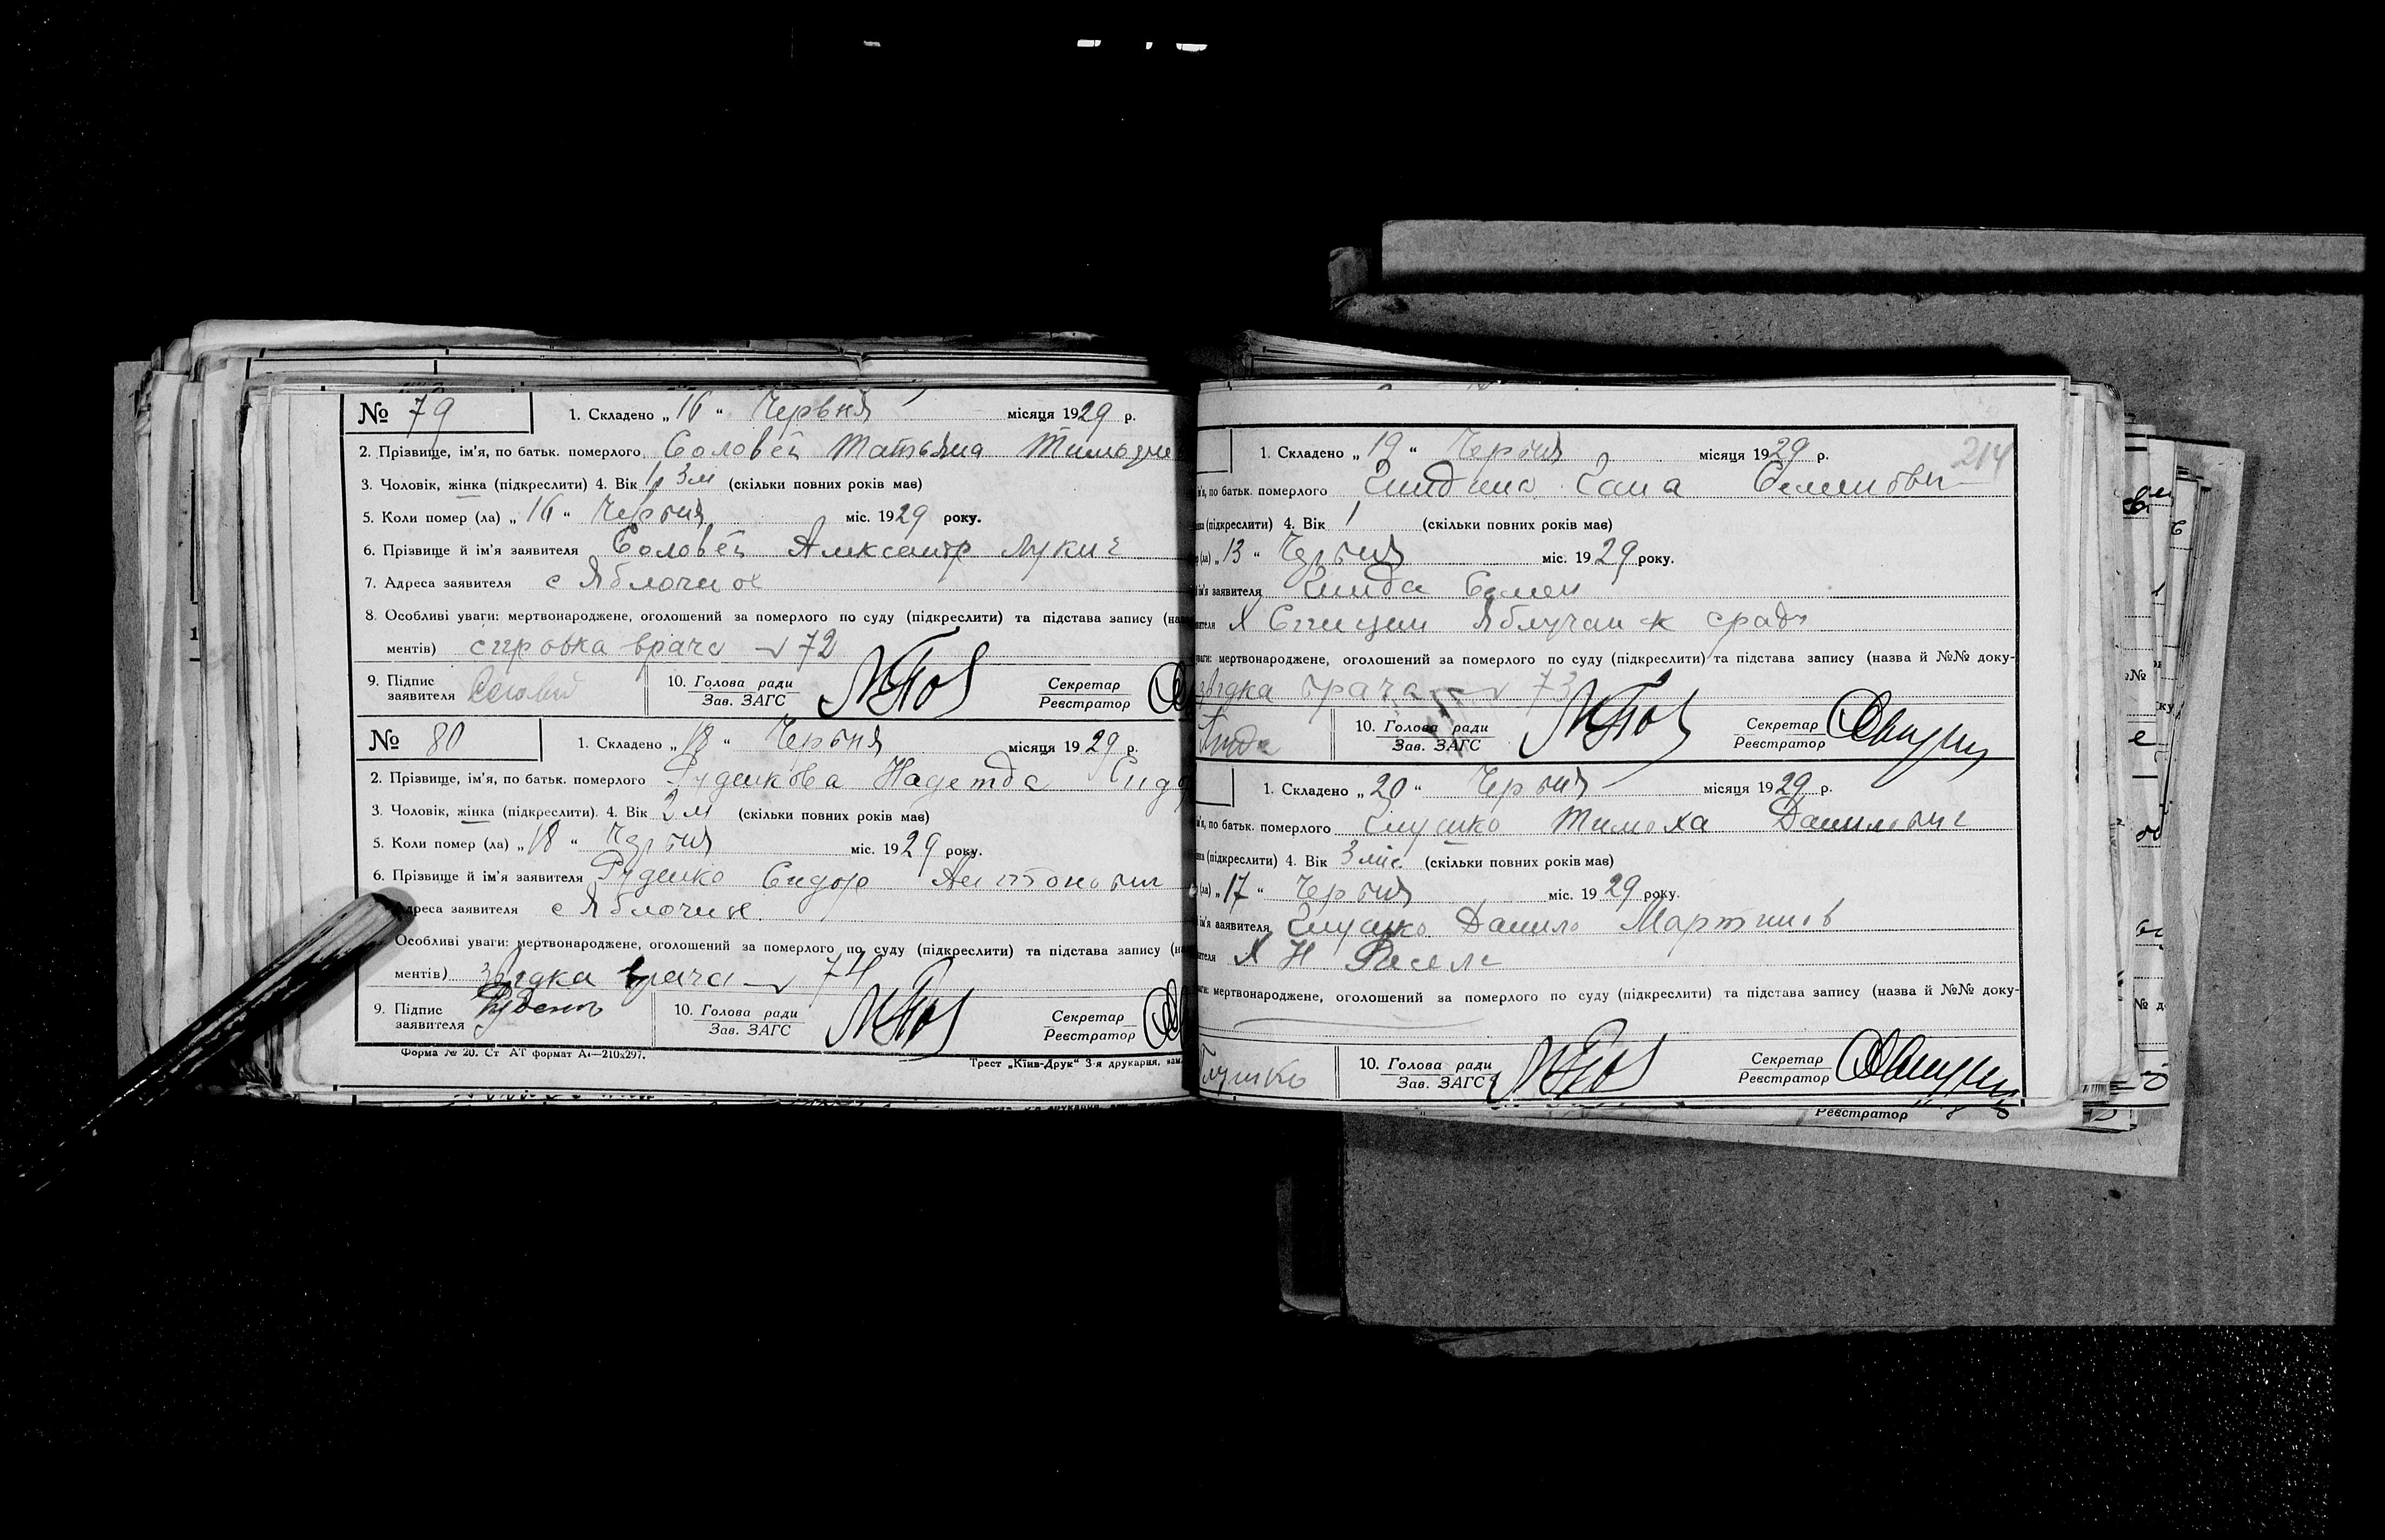 № 79 1. Складено „16“ Червня місяця 1929 р.
2. Прізвище, ім'я, по батьк. померлого Соловей Татьяна
3. Чоловік, жінка (підкреслити) 4. Вік 1р 3м (скільки повних років має)
5. Коли помер (ла) „16“ Червня міс. 1929 року.
6. Прізвище й ім'я заявителя Соловей Александр Лукич
7. Адреса заявителя с Яблочное
8. Особливі уваги: мертвонароджене, оголошений за померлого по суду (підкреслити) та підстава запису (на
ментів) справка врача № 72
9. Підпис заявителя Соловей 10. Голова ради Зав. ЗАГС Секретар Реєстратор
№ 80 1. Складено „18“ Червня місяця 1929 р.
2. Прізвище, ім'я, по батьк. померлого Руденкова Надежда Сидо
3. Чоловік, жінка (підкреслити). 4. Вік 2 м (скільки повних років має)
5. Коли помер (ла) „18“ Червня міс. 1929 року.
6. Прізвище й ім'я заявителя Руденко Сидор Антонович
дреса заявителя с Яблочное
Особливі уваги: мертвонароджене, оголошений за померлого по суду (підкреслити) та підстава запису (на
ментів) звідка врача № 74
9. Підпис заявителя Руденко 10. Голова ради Зав. ЗАГС Секретар Реєстратор
Форма № 20. Ст АТ формат А4—210х297. Трест „Київ-Друк“ 3-я друкарня, зам.
214
1. Складено „19“ Червня місяця 1929 р.
м'я, по батьк. померлого Семенович
(підкреслити) 4. Вік 1 (скільки повних років має)
(ла) „13“ Червня міс. 1929 року.
ім'я заявителя Гнида Семен
вителя Х
уваги: мертвонароджене, оголошений за померлого по суду (підкреслити) та підстава запису (назва й №№ доку-
звідка врача № 73
Гнида 10. Голова ради Зав. ЗАГС Секретар Реєстратор
1. Складено „20“ Червня місяця 1929 р.
м'я, по батьк. померлого Глушко Тимоха Данилович
(підкреслити) 4. Вік 3 міс (скільки повних років має)
(ла) „17“ Червня міс. 1929 року.
ім'я заявителя Глушко Данило Мартинов
вителя Х Н
уваги: мертвонароджене, оголошений за померлого по суду (підкреслити) та підстава запису (назва й №№ доку-
Глушко 10. Голова ради Зав. ЗАГС Секретар Реєстратор
Реєстратор